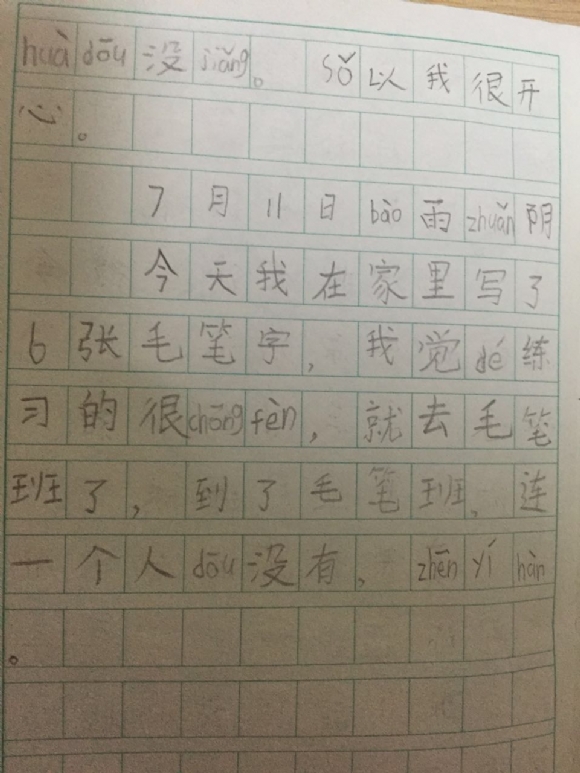 huà dōu 没 jiǎng。 sǒ 以我很开
心。
7月11日 bào 雨 zhuǎn 阴
今天我在家里写了
6张毛笔字，我觉 dé 练
习的很 chōng fèn，就去毛笔
班了，到了毛笔班，连
一个人 dōu 没有，zhēn yí hàn
。